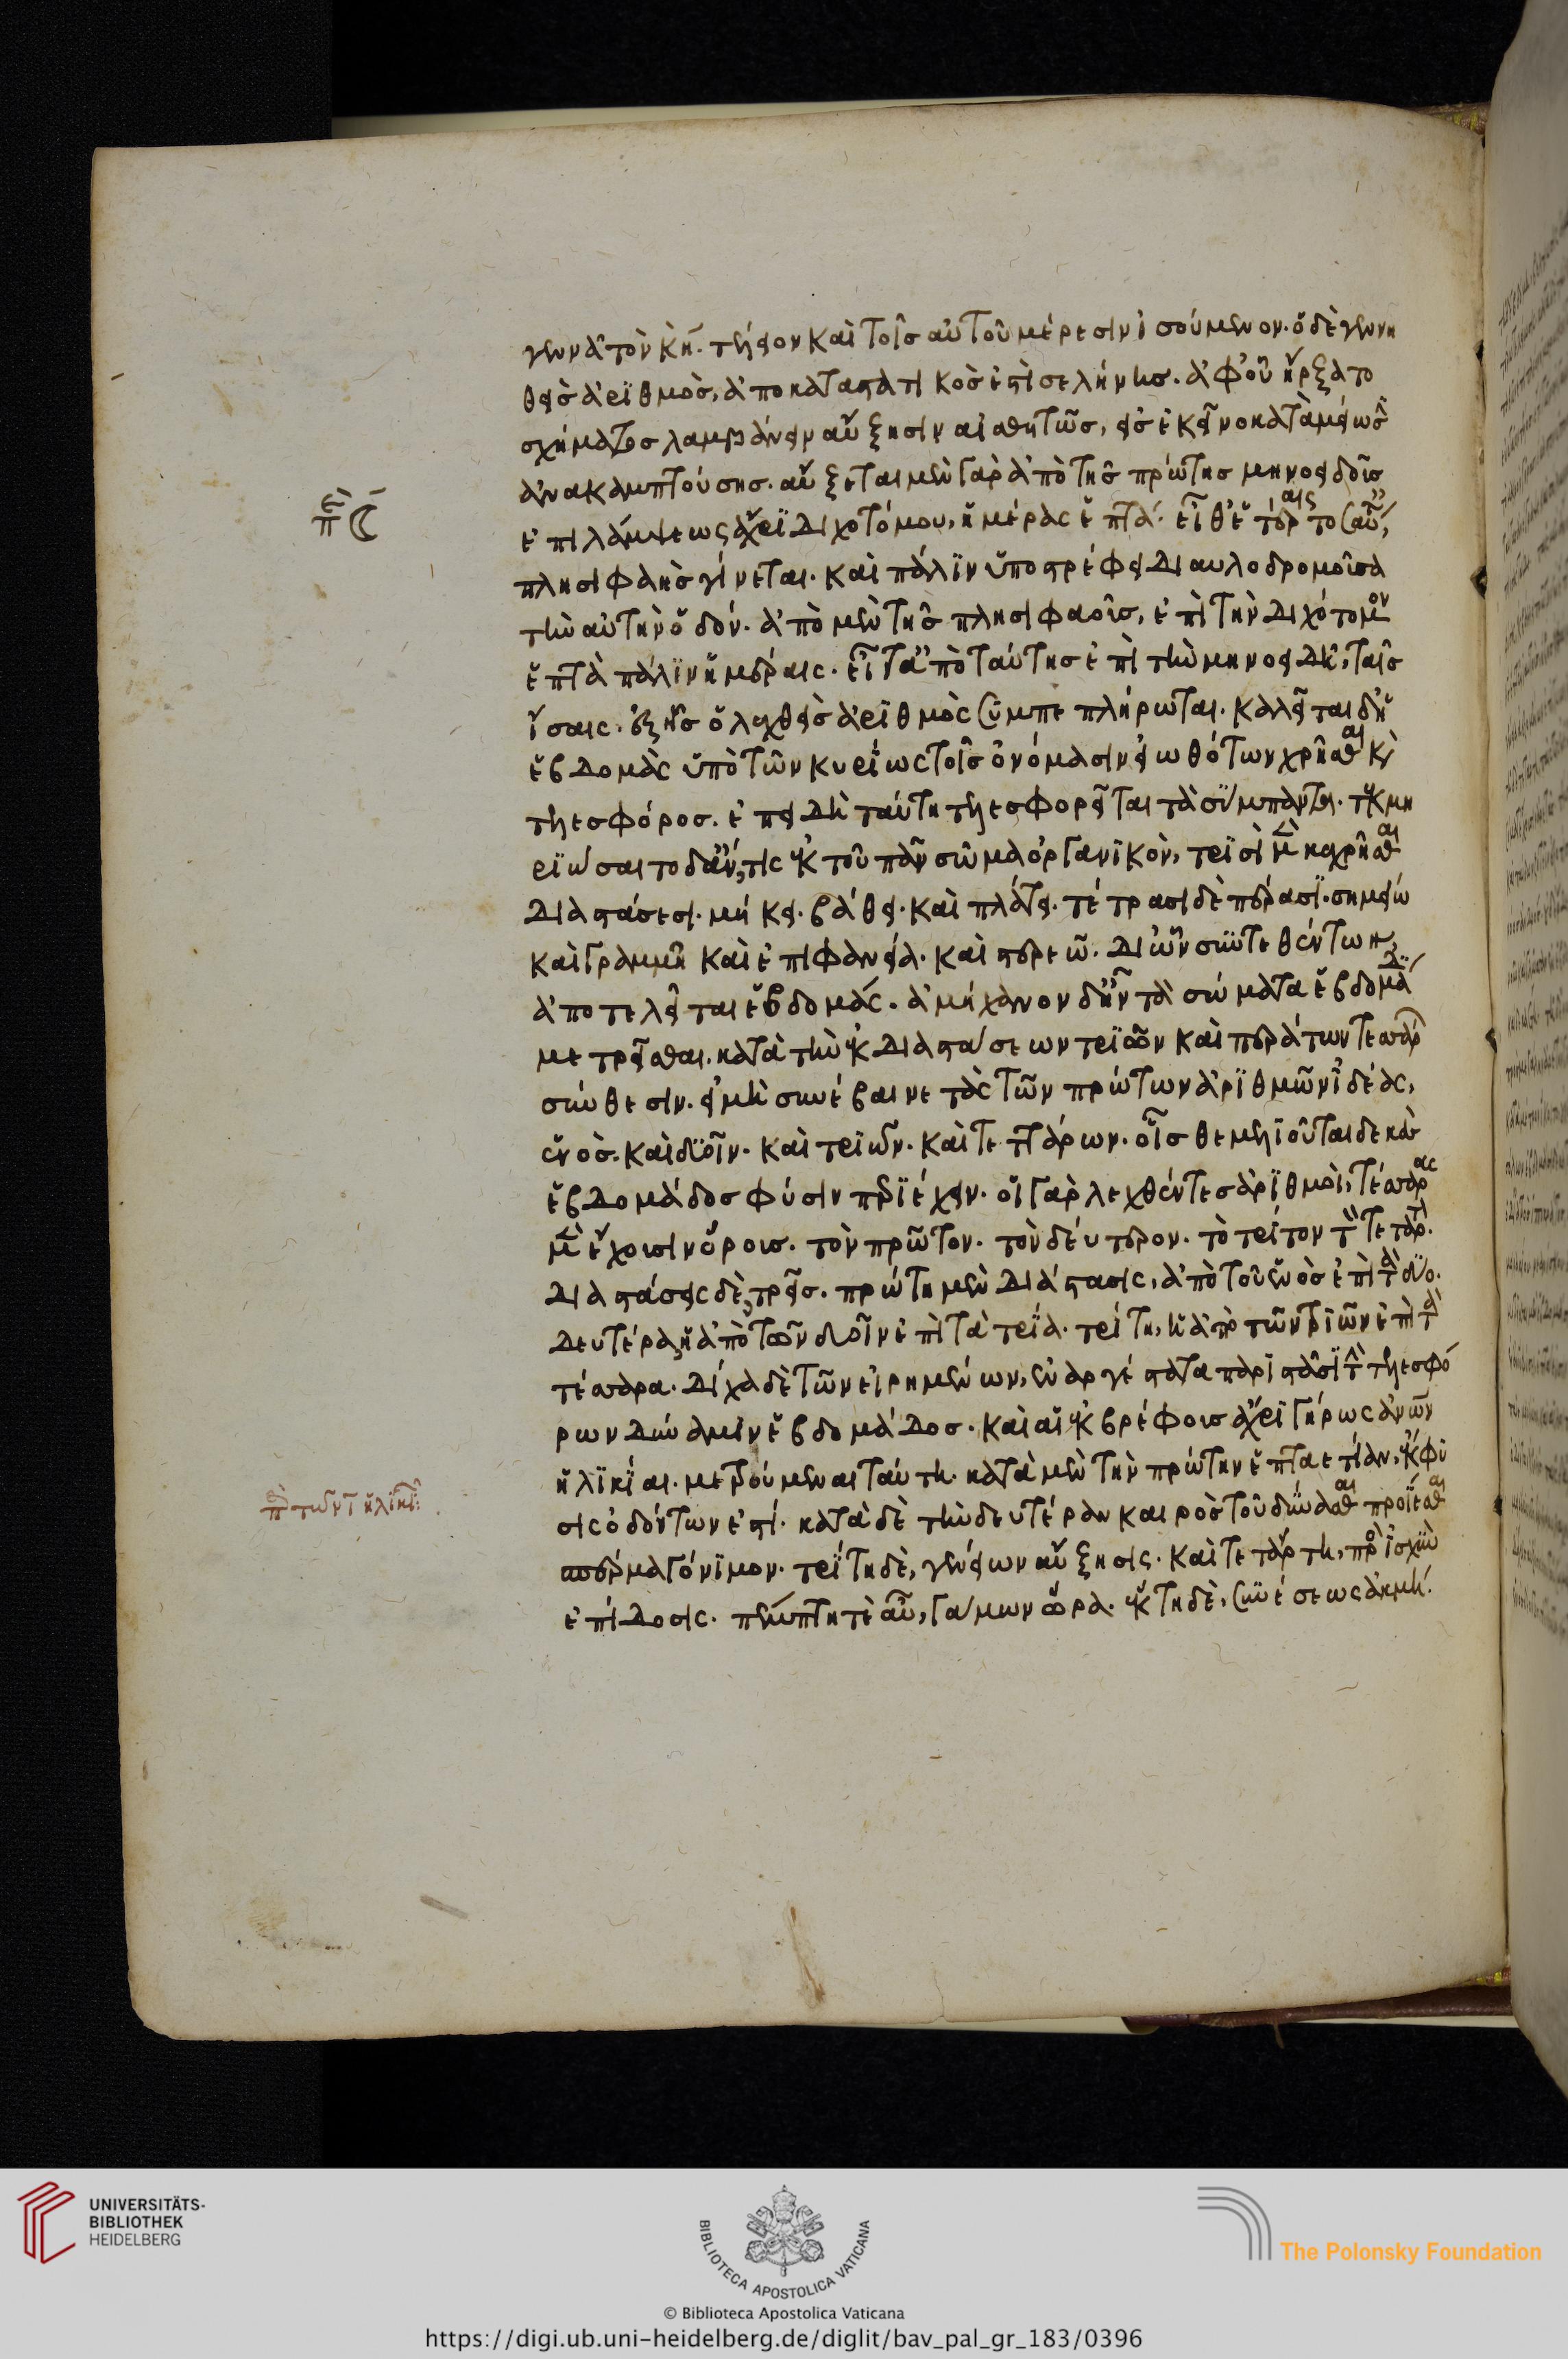 γεννᾶ τὸν κη. τέλειον καὶ τοῖς αὐτοῦ μέρεσιν ἰσούμενον. ὁ δὲ γεννη
θεὶς ἀριθμὸς, ἀποκαταστατικὸς ἐστὶ σελήνης. ἀφ' οὗ ἤρξατο
σχήματος λαμβάνειν αὔξησιν αἰσθητῶς, εἰς ἐκεῖνο κατὰ μείωσιν
ἀνακαμπτούσης. αὔξεται μὲν γὰρ ἀπὸ τῆς πρώτης μηνοειδοῦς
ἐπιλάμψεως ἄχρι διχοτόμου, ἡμέρας ἑπτά. εἶθ' ἑτέραις τοσαύταις
πλησιφαὴς γίνεται. καὶ πάλιν ὑποστρέφει διαυλοδρομοῦσα
τὴν αὐτὴν ὁδόν. ἀπὸ μὲν τῆς πλησιφαοῦς, ἐπὶ τὴν διχότομον
ἑπτὰ πάλιν ἡμέραις. εἶτα ἀπὸ ταύτης ἐπὶ τὴν μηνοειδῆ, ταῖς
ἴσαις. ἐξ ἧς ὁ λεχθεὶς ἀριθμὸς συμπεπλήρωται. καλεῖται δὴ
ἑβδομὰς ὑπὸ τῶν κυρίως τοῖς ὀνόμασιν εἰωθότων χρῆσθαι καὶ
τελεσφόρος. ἐπειδὴ ταύτη τελεσφορεῖται τὰ σύμπαντα. τεκμη
ριώσαιτο δ' ἄν τις ἐκ τοῦ πᾶν σῶμα ὀργανικὸν, τρισὶ μὲν κεχρῆσθαι
διαστάσεσι. μήκει. βάθει. καὶ πλάτει. τέτρασι δὲ πέρασι. σημείω
καὶ γραμμῆ καὶ ἐπιφανεία. καὶ στερεῶ. δι' ὧν συντεθέντων,
ἀποτελεῖται ἑβδομάς. ἀμήχανον δ' ἦν τὰ σώματα ἑβδομάδι
μετρεῖσθαι. κατὰ τὴν ἐκ διαστάσεων τριῶν καὶ περάτων τεσσάρων
σύνθεσιν. εἰ μὴ συνέβαινε τὰς τῶν πρώτων ἀριθμῶν ἰδέας,
ἑνὸς. καὶ δυοῖν. καὶ τριῶν. καὶ τεττάρων. οἷς θεμελιοῦται δεκὰς
ἑβδομάδος φύσιν περιέχειν. οἱ γὰρ λεχθέντες ἀριθμοὶ, τέσσαρας
μὲν ἔχουσιν ὅρους. τὸν πρῶτον. τὸν δεύτερον. τὸν τρίτον τὸν τέταρτον.
διαστάσεις δὲ, τρεῖς. πρώτη μὲν διάστασις, ἀπὸ τοῦ ἑνὸς ἐπὶ τὰ δύο.
δευτέρα, ἡ ἀπὸ τῶν δυοῖν ἐπὶ τὰ τρία. τρίτη, ἡ ἀπὸ τῶν τριῶν ἐπὶ τὰ
τέσσαρα. δίχα δὲ τῶν εἰρημένων, ἐναργέστατα παριστᾶσι τὴν τελεσφό
ρων δύναμιν ἑβδομάδος. καὶ αἱ ἐκ βρέφους ἄχρι γήρως ἀνθρώπων
ἡλικίαι. μετρούμεναι ταύτη. κατὰ μὲν τὴν πρώτην ἑπταετίαν, ἔκφυ
σις ὀδόντων ἐστί. κατὰ δὲ τὴν δευτέραν καιρὸς τοῦ δύνασθαι προΐεσθαι
σπέρμα γόνιμον. τρίτη δὲ, γενείων αὔξησις. καὶ τετάρτη, πρὸς ἰσχὺν
ἐπίδοσις. πέμπτη τὲ αὖ, γάμων ὥρα. ἕκτη δὲ, συνέσεως ἀκμή.
περὶ ☾
περὶ τῶν ζ ἡλικιῶν:
UNIVERSITÄTS-
BIBLIOTHEK
HEIDELBERG
BIBLIOTECA APOSTOLICA VATICANA
The Polonsky Foundation
© Biblioteca Apostolica Vaticana
https://digi.ub.uni-heidelberg.de/diglit/bav_pal_gr_183/0396